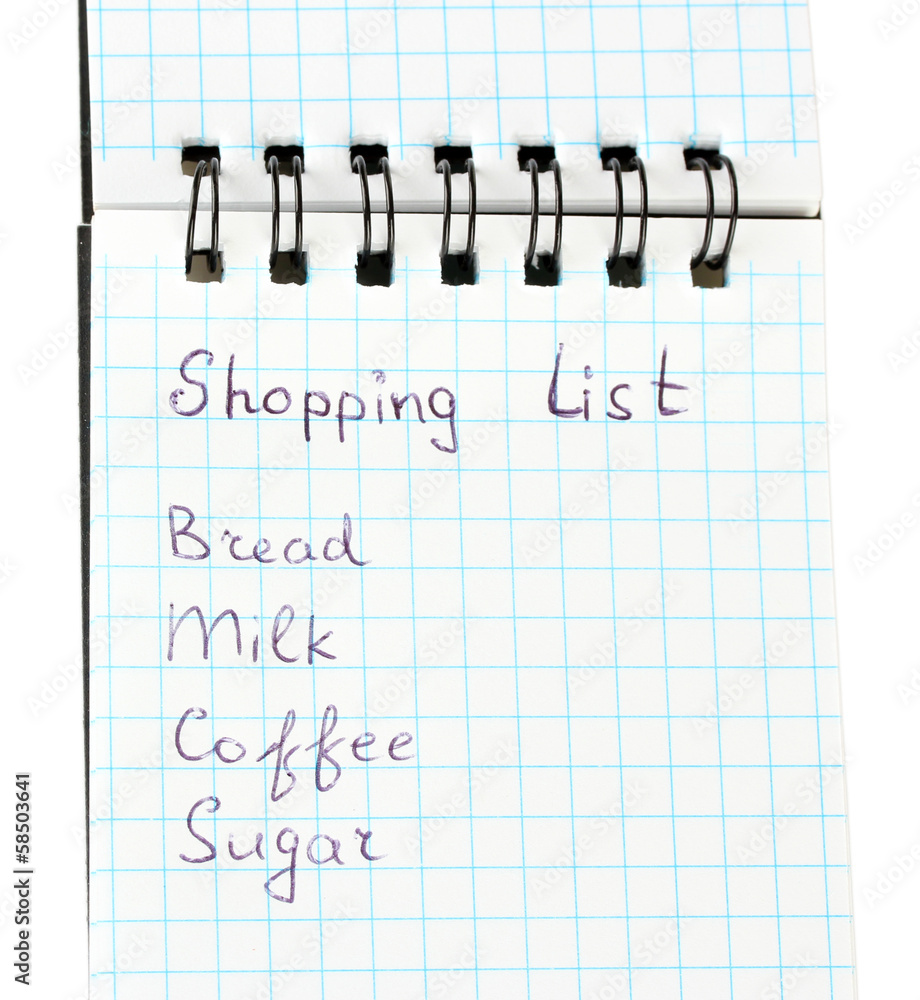 Shopping List
Bread
Milk
Coffee
Sugar
Adobe Stock | #58503641